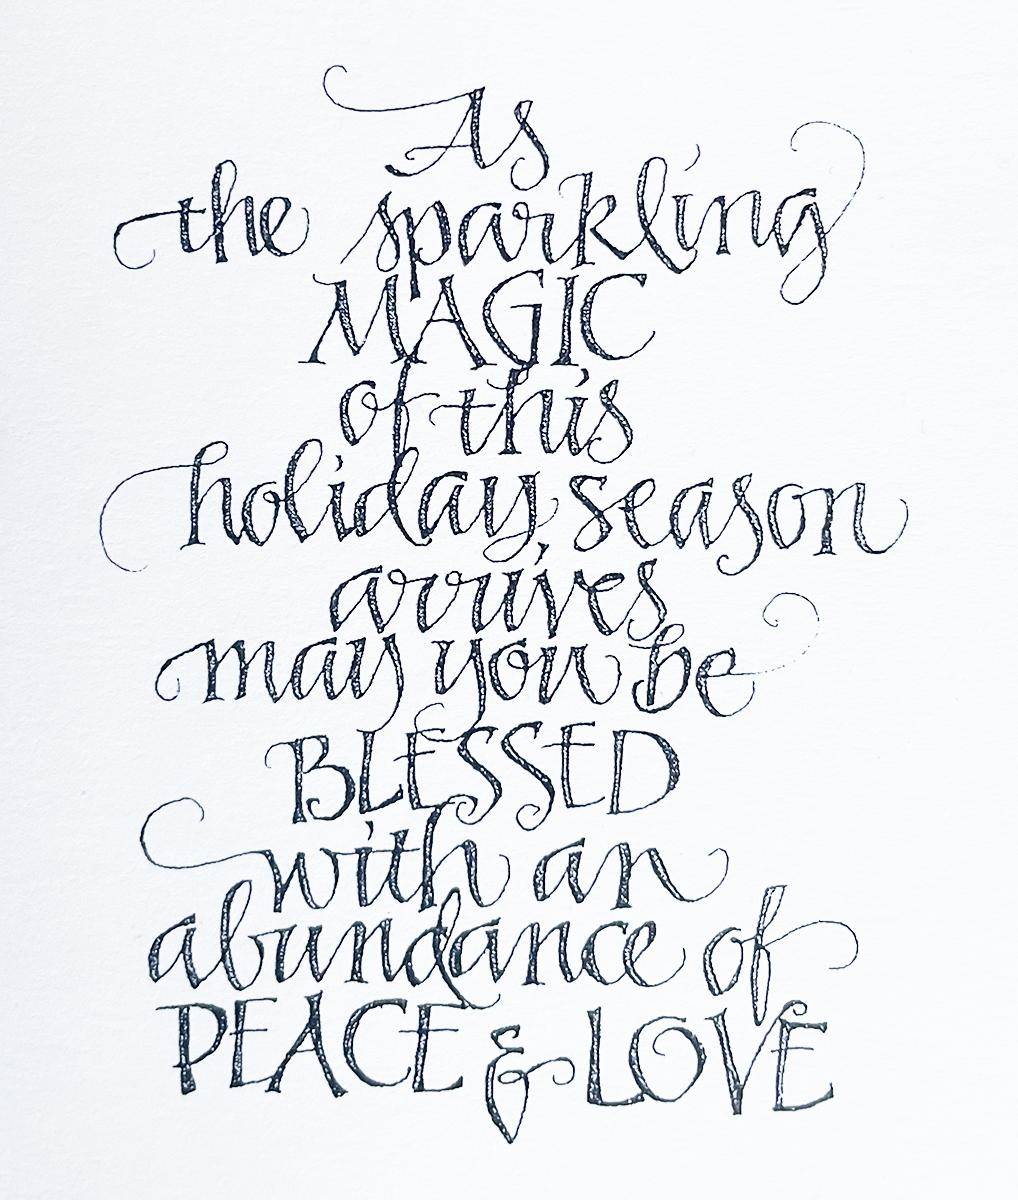 As
the sparkling
MAGIC
of this
holiday season
arrives
may you be
BLESSED
with an
abundance of
PEACE & LOVE